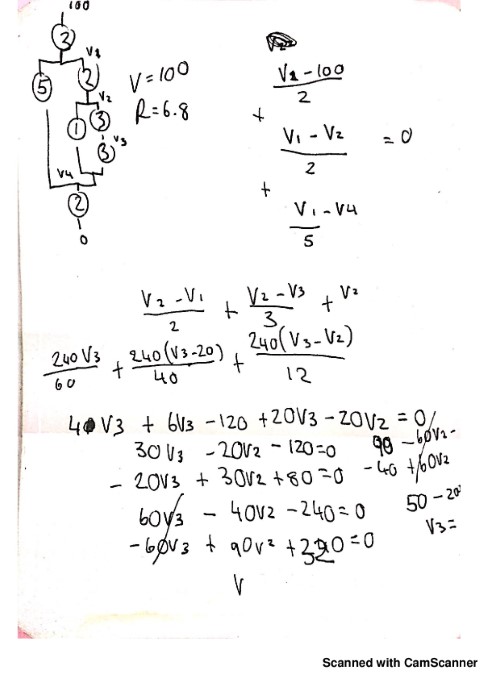 100
3
V1
5
2
V2
1
3
V3
3
V4
2
0
V = 100
R = 6.8
V1 - 100
2
+
V1 - V2
2
= 0
+
V1 - V4
5
V2 - V1 + V2 - V3 + V2
2 3
240V3 + 240(V3-20) + 240(V3-V2)
60 40 12
4V3 + 6V3 - 120 + 20V3 - 20V2 = 0
30V3 - 20V2 - 120 = 0
- 20V3 + 30V2 + 80 = 0
60V3 - 40V2 - 240 = 0
- 60V3 + 90V2 + 320 = 0
V
90 - 60V2 -
- 40 + 60V2
50 - 20
V3 =
Scanned with CamScanner